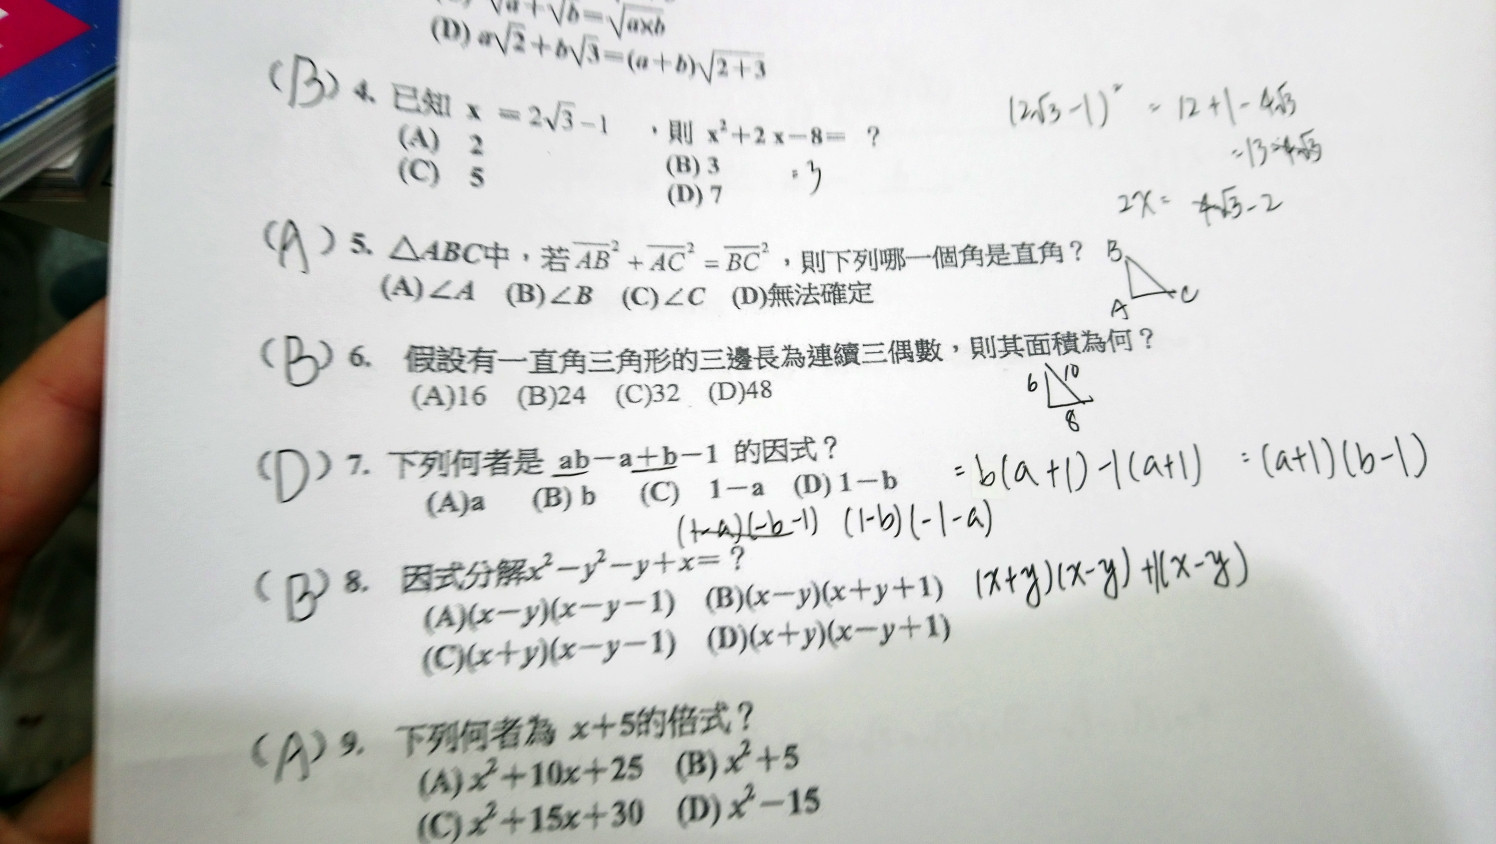 √a+√b=√a×b
(D) a√2+b√3=(a+b)√2+3
(B) 4. 已知 x =2√3-1 ,則 x²+2x-8= ?
(A) 2 (B) 3 =3
(C) 5 (D) 7
(2√3-1)² = 12+1-4√3
=13-4√3
2x= 4√3-2
(A) 5. △ABC中,若AB²+AC²=BC²,則下列哪一個角是直角?
(A)∠A (B)∠B (C)∠C (D)無法確定
B
A C
(B) 6. 假設有一直角三角形的三邊長為連續三偶數,則其面積為何?
(A)16 (B)24 (C)32 (D)48
6 10
8
(D) 7. 下列何者是 ab-a+b-1 的因式?
(A)a (B) b (C) 1-a (D) 1-b
=b(a+1)-1(a+1) =(a+1)(b-1)
(1-a)(-b-1) (1-b)(-1-a)
(B) 8. 因式分解x²-y²-y+x=?
(A)(x-y)(x-y-1) (B)(x-y)(x+y+1) (x+y)(x-y)+1(x-y)
(C)(x+y)(x-y-1) (D)(x+y)(x-y+1)
(A) 9. 下列何者為 x+5的倍式?
(A) x²+10x+25 (B) x²+5
(C) x²+15x+30 (D) x²-15